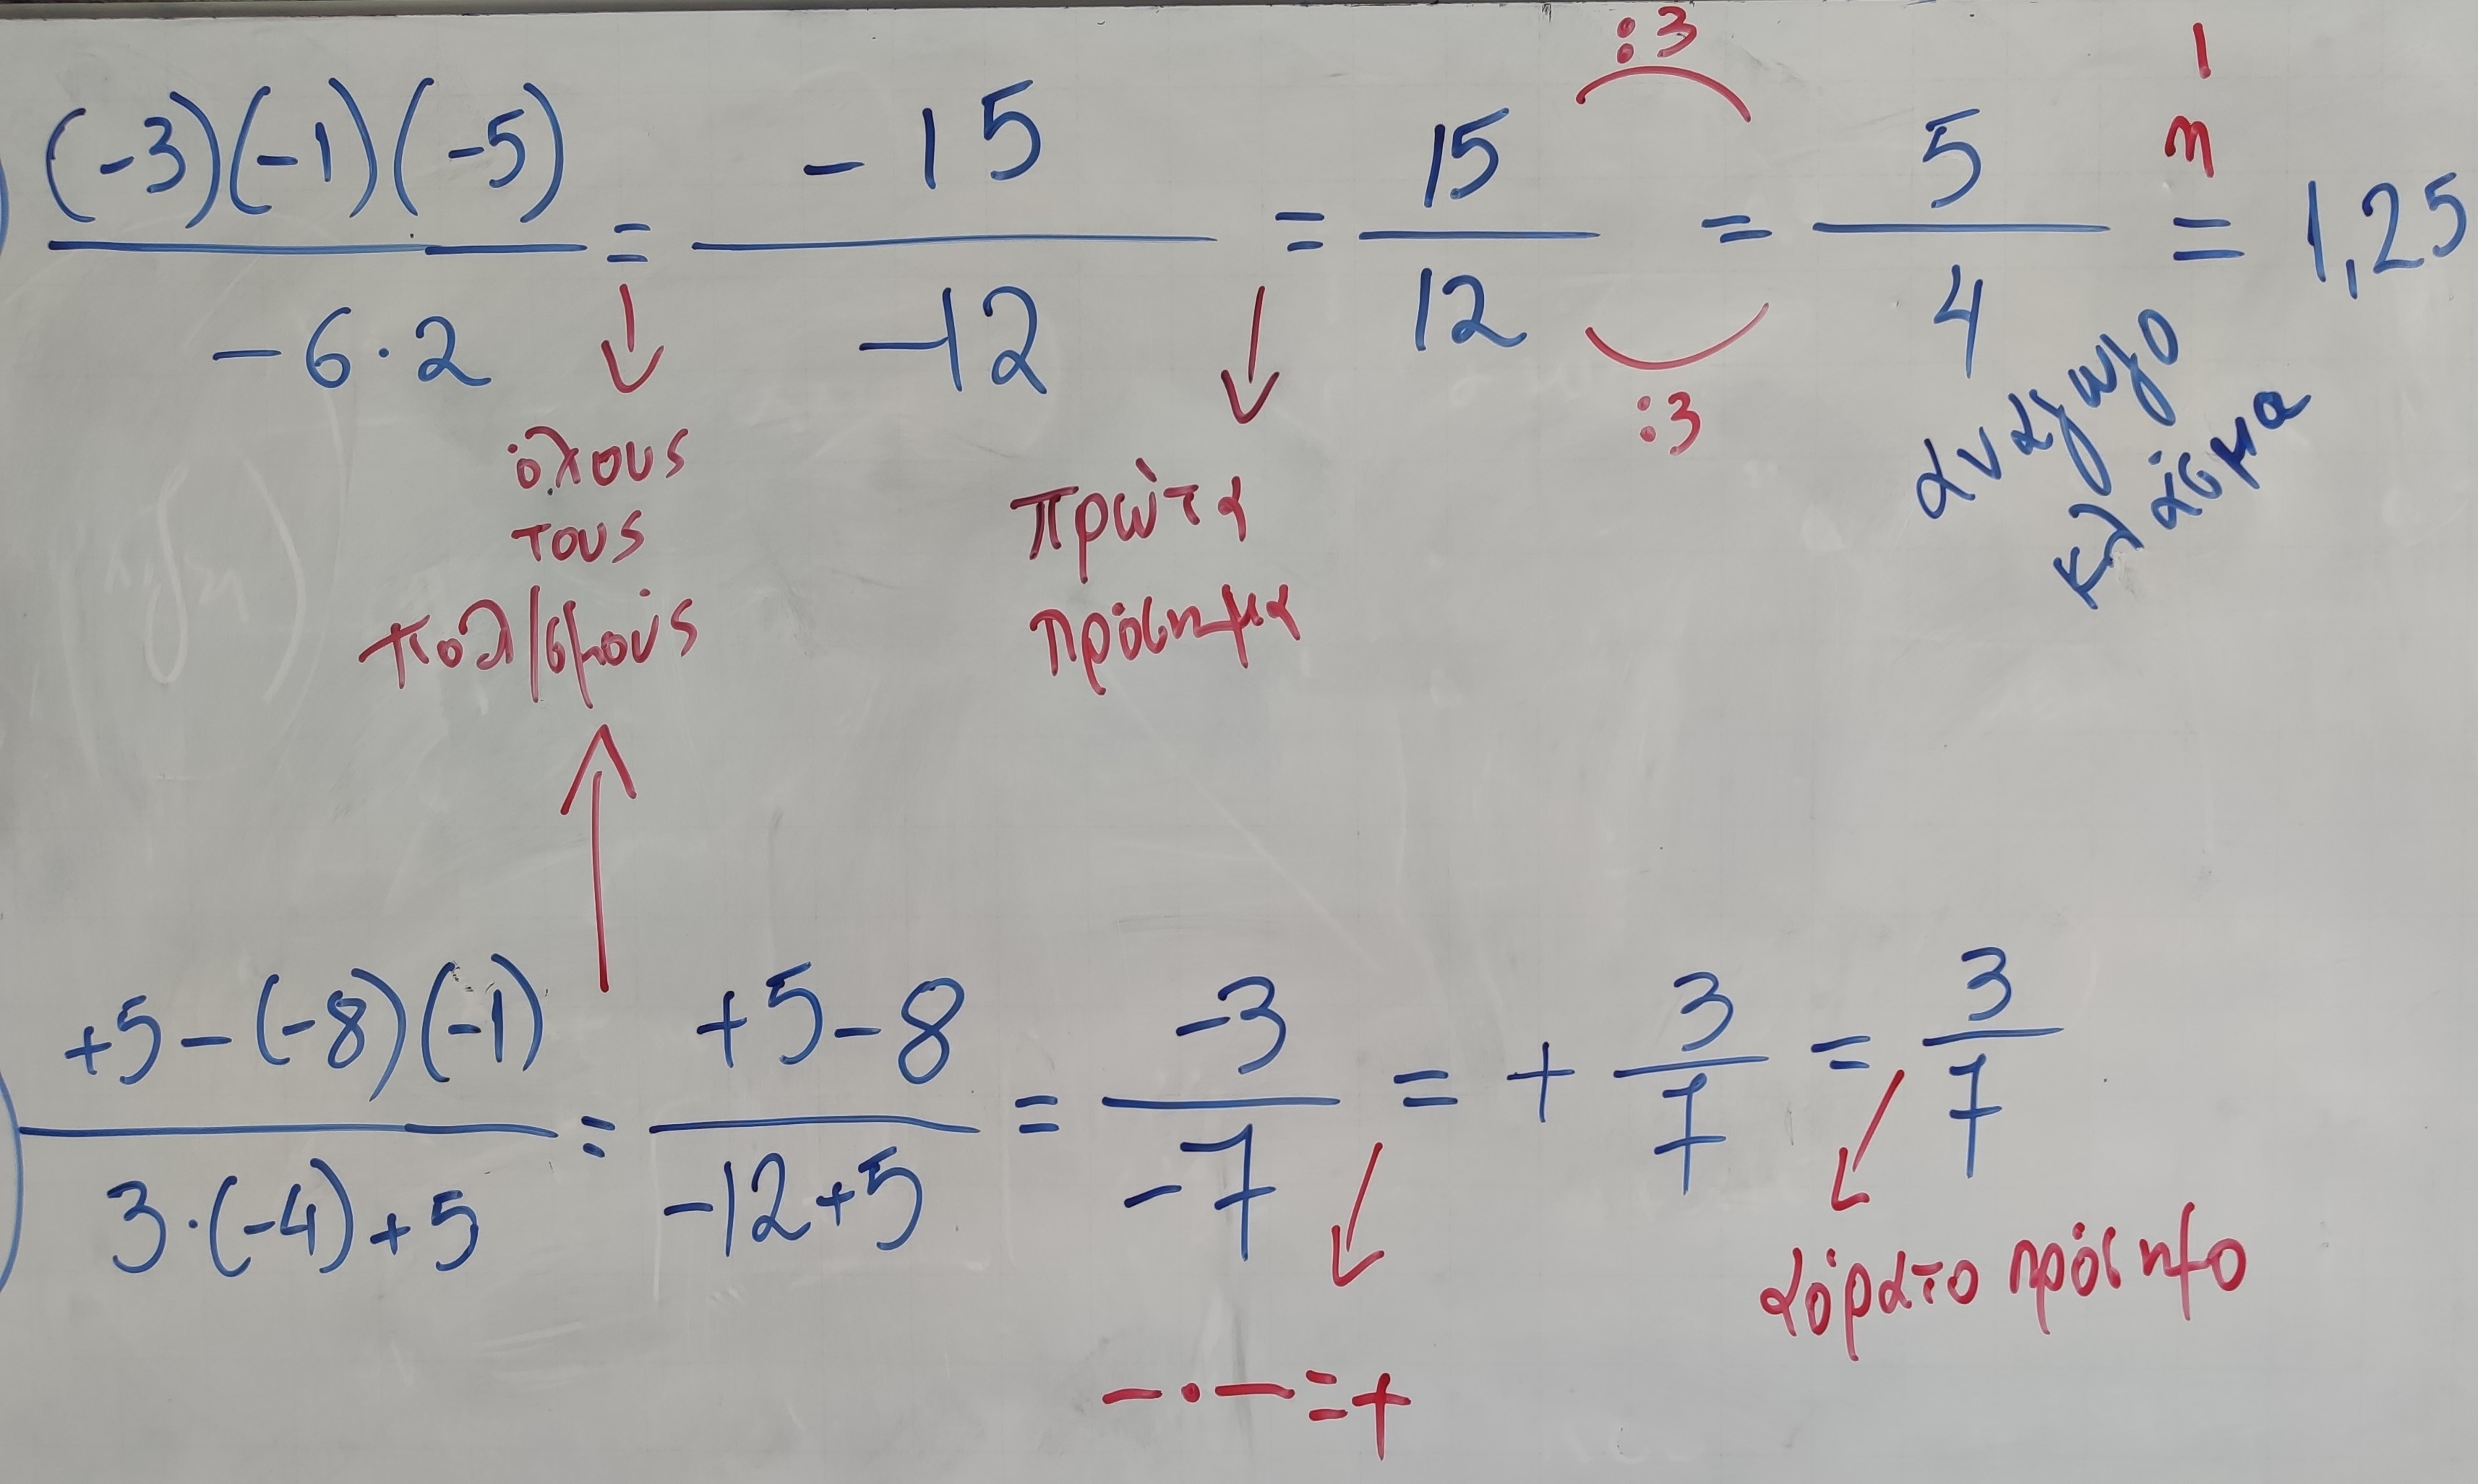 :3
(-3)(-1)(-5) / -6·2 = -15 / -12 = 15 / 12 = 5 / 4 = 1,25
ή
:3
όλους
τους
πολ/σμούς
πρώτα
πρόσημα
ανάγωγο
κλάσμα
+5-(-8)(-1) / 3·(-4)+5 = +5-8 / -12+5 = -3 / -7 = + 3 / 7 = 3 / 7
- · - = +
αόρατο πρόσημο